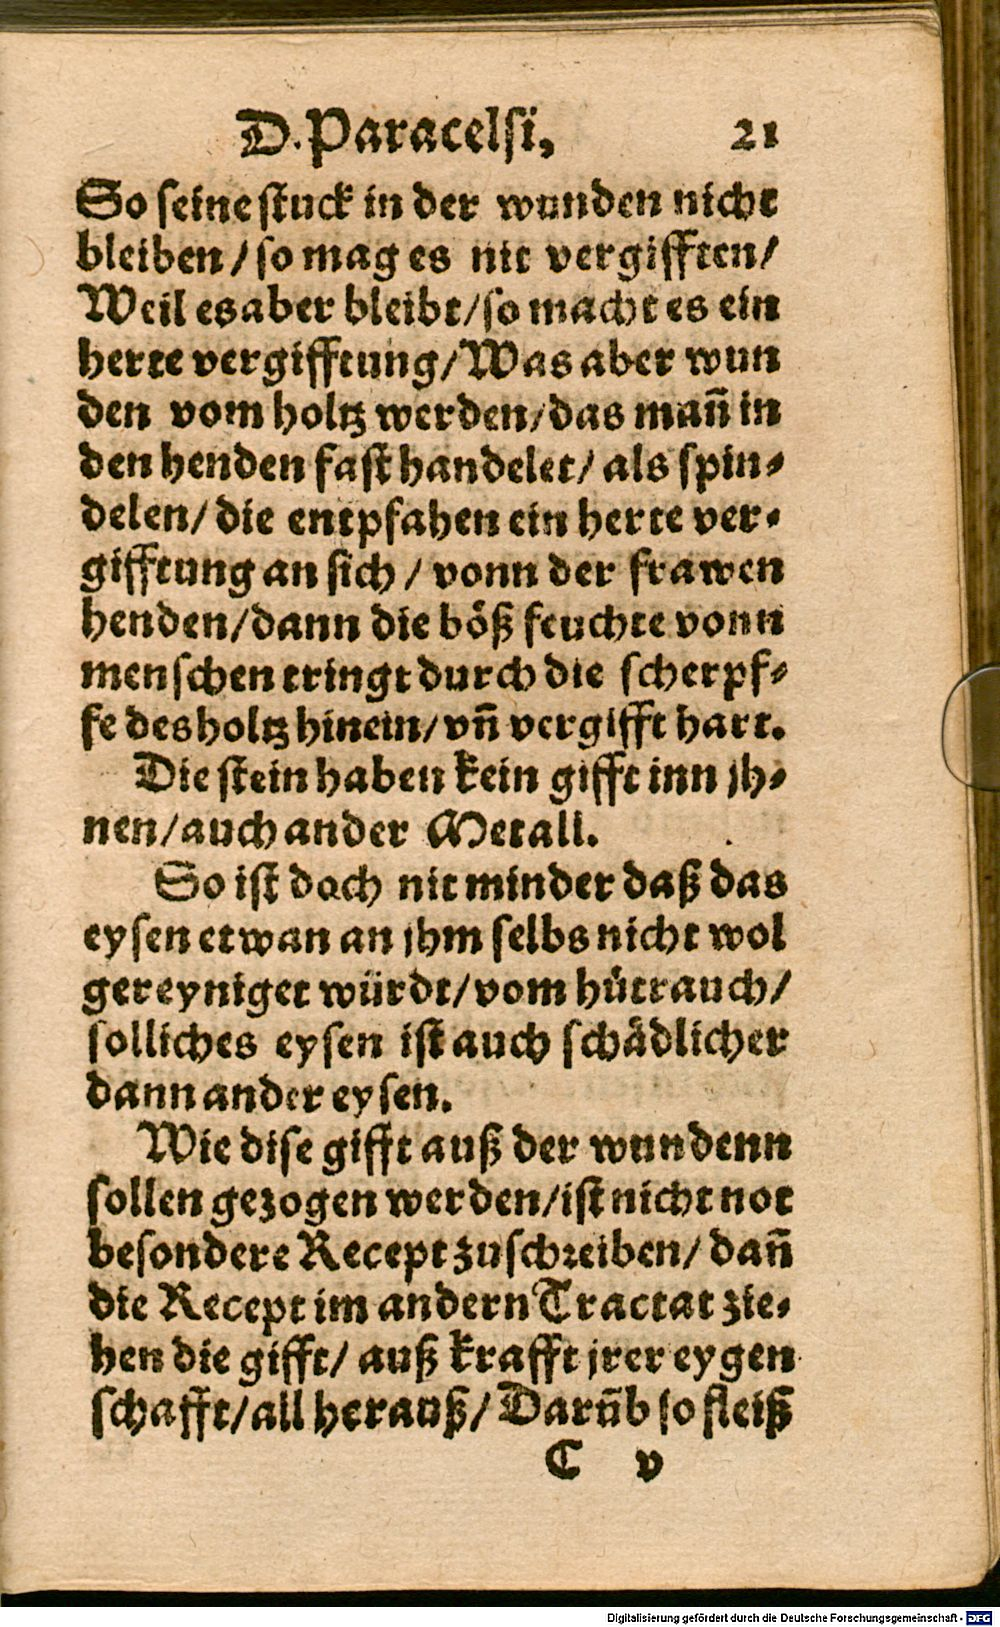 D. Paracelsi, 21
So seine stuck in der wunden nicht
bleiben / so mag es nit vergifften /
Weil es aber bleibt / so macht es ein
herte vergifftung / Was aber wun
den vom holtz werden / das mañ in
den henden fast handelet / als spin⸗
delen / die entpfahen ein herte ver⸗
gifftung an sich / vonn der frawen
henden / dann die böß feuchte vonn
menschen tringt durch die scherpf⸗
fe des holtz hinein / vñ vergifft hart.
Die stein haben kein gifft inn jh⸗
nen / auch ander Metall.
So ist doch nit minder daß das
eysen etwan an jhm selbs nicht wol
gereyniget würdt / vom hütrauch /
solliches eysen ist auch schädlicher
dann ander eysen.
Wie dise gifft auß der wundenn
sollen gezogen werden / ist nicht not
besondere Recept zuschreiben / dañ
die Recept im andern Tractat zie⸗
hen die gifft / auß krafft jrer eygen
schafft / all herauß / Darüb so fleiß
C v
Digitalisierung gefördert durch die Deutsche Forschungsgemeinschaft - DFG